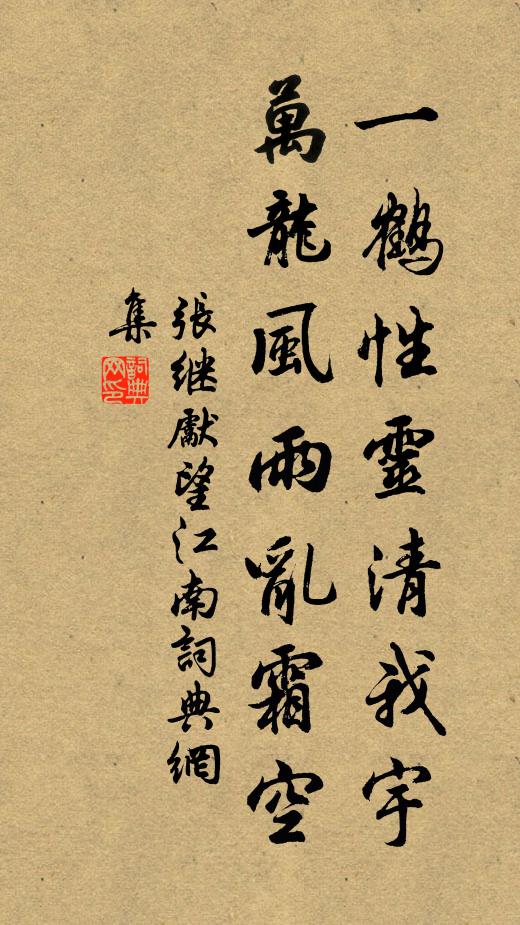 一鶴性靈清我宇
萬龍風雨亂霜空
張继獻望江南詞典網
集
詞典
网印